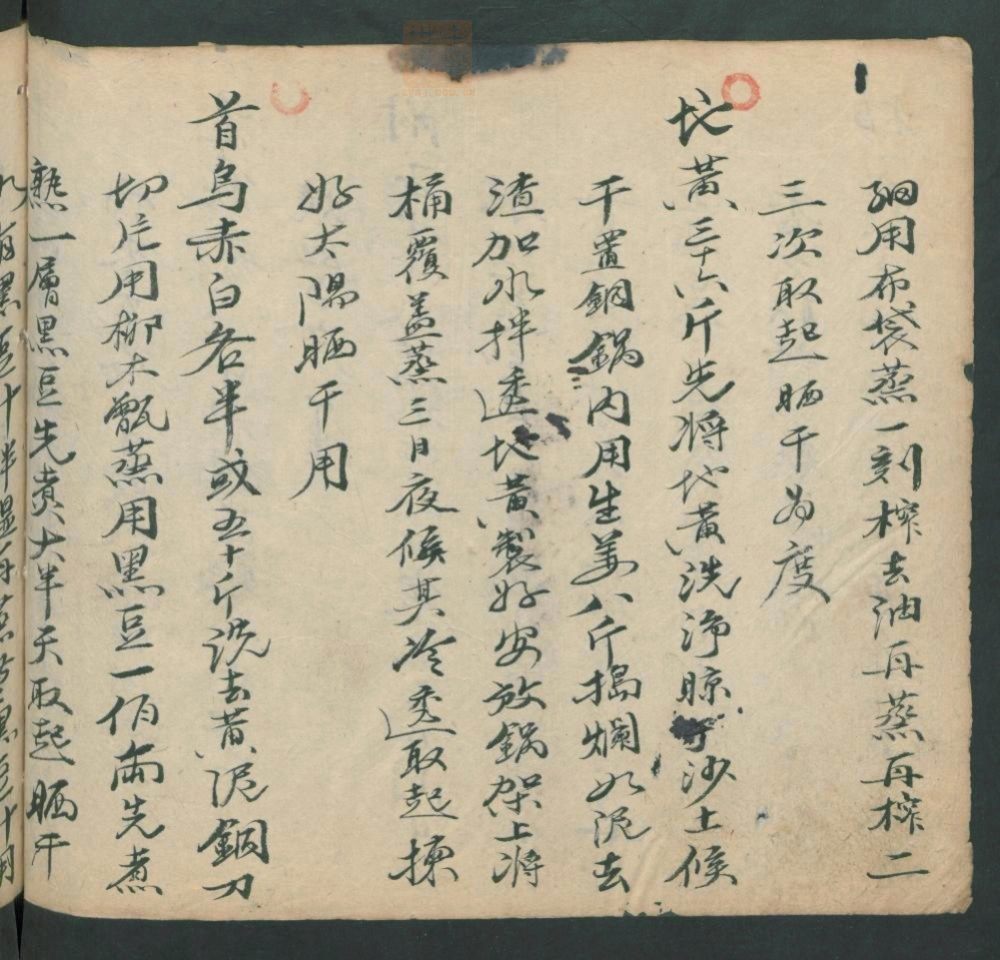 細用布袋蒸一刻榨去油再蒸再榨二
三次取起晒干為度
地黃三十六斤先將地黃洗淨晾干沙土候
干置銅鍋內用生姜八斤搗爛如泥去
渣加水拌透地黃製好安放鍋架上將
桶覆蓋蒸三日夜候其冷透取起揀
好太陽晒干用
首烏赤白各半或五十斤洗去黃泥銅刀
切片用柳木甑蒸用黑豆一佰兩先煮
熟一層黑豆先煮大半天取起晒干